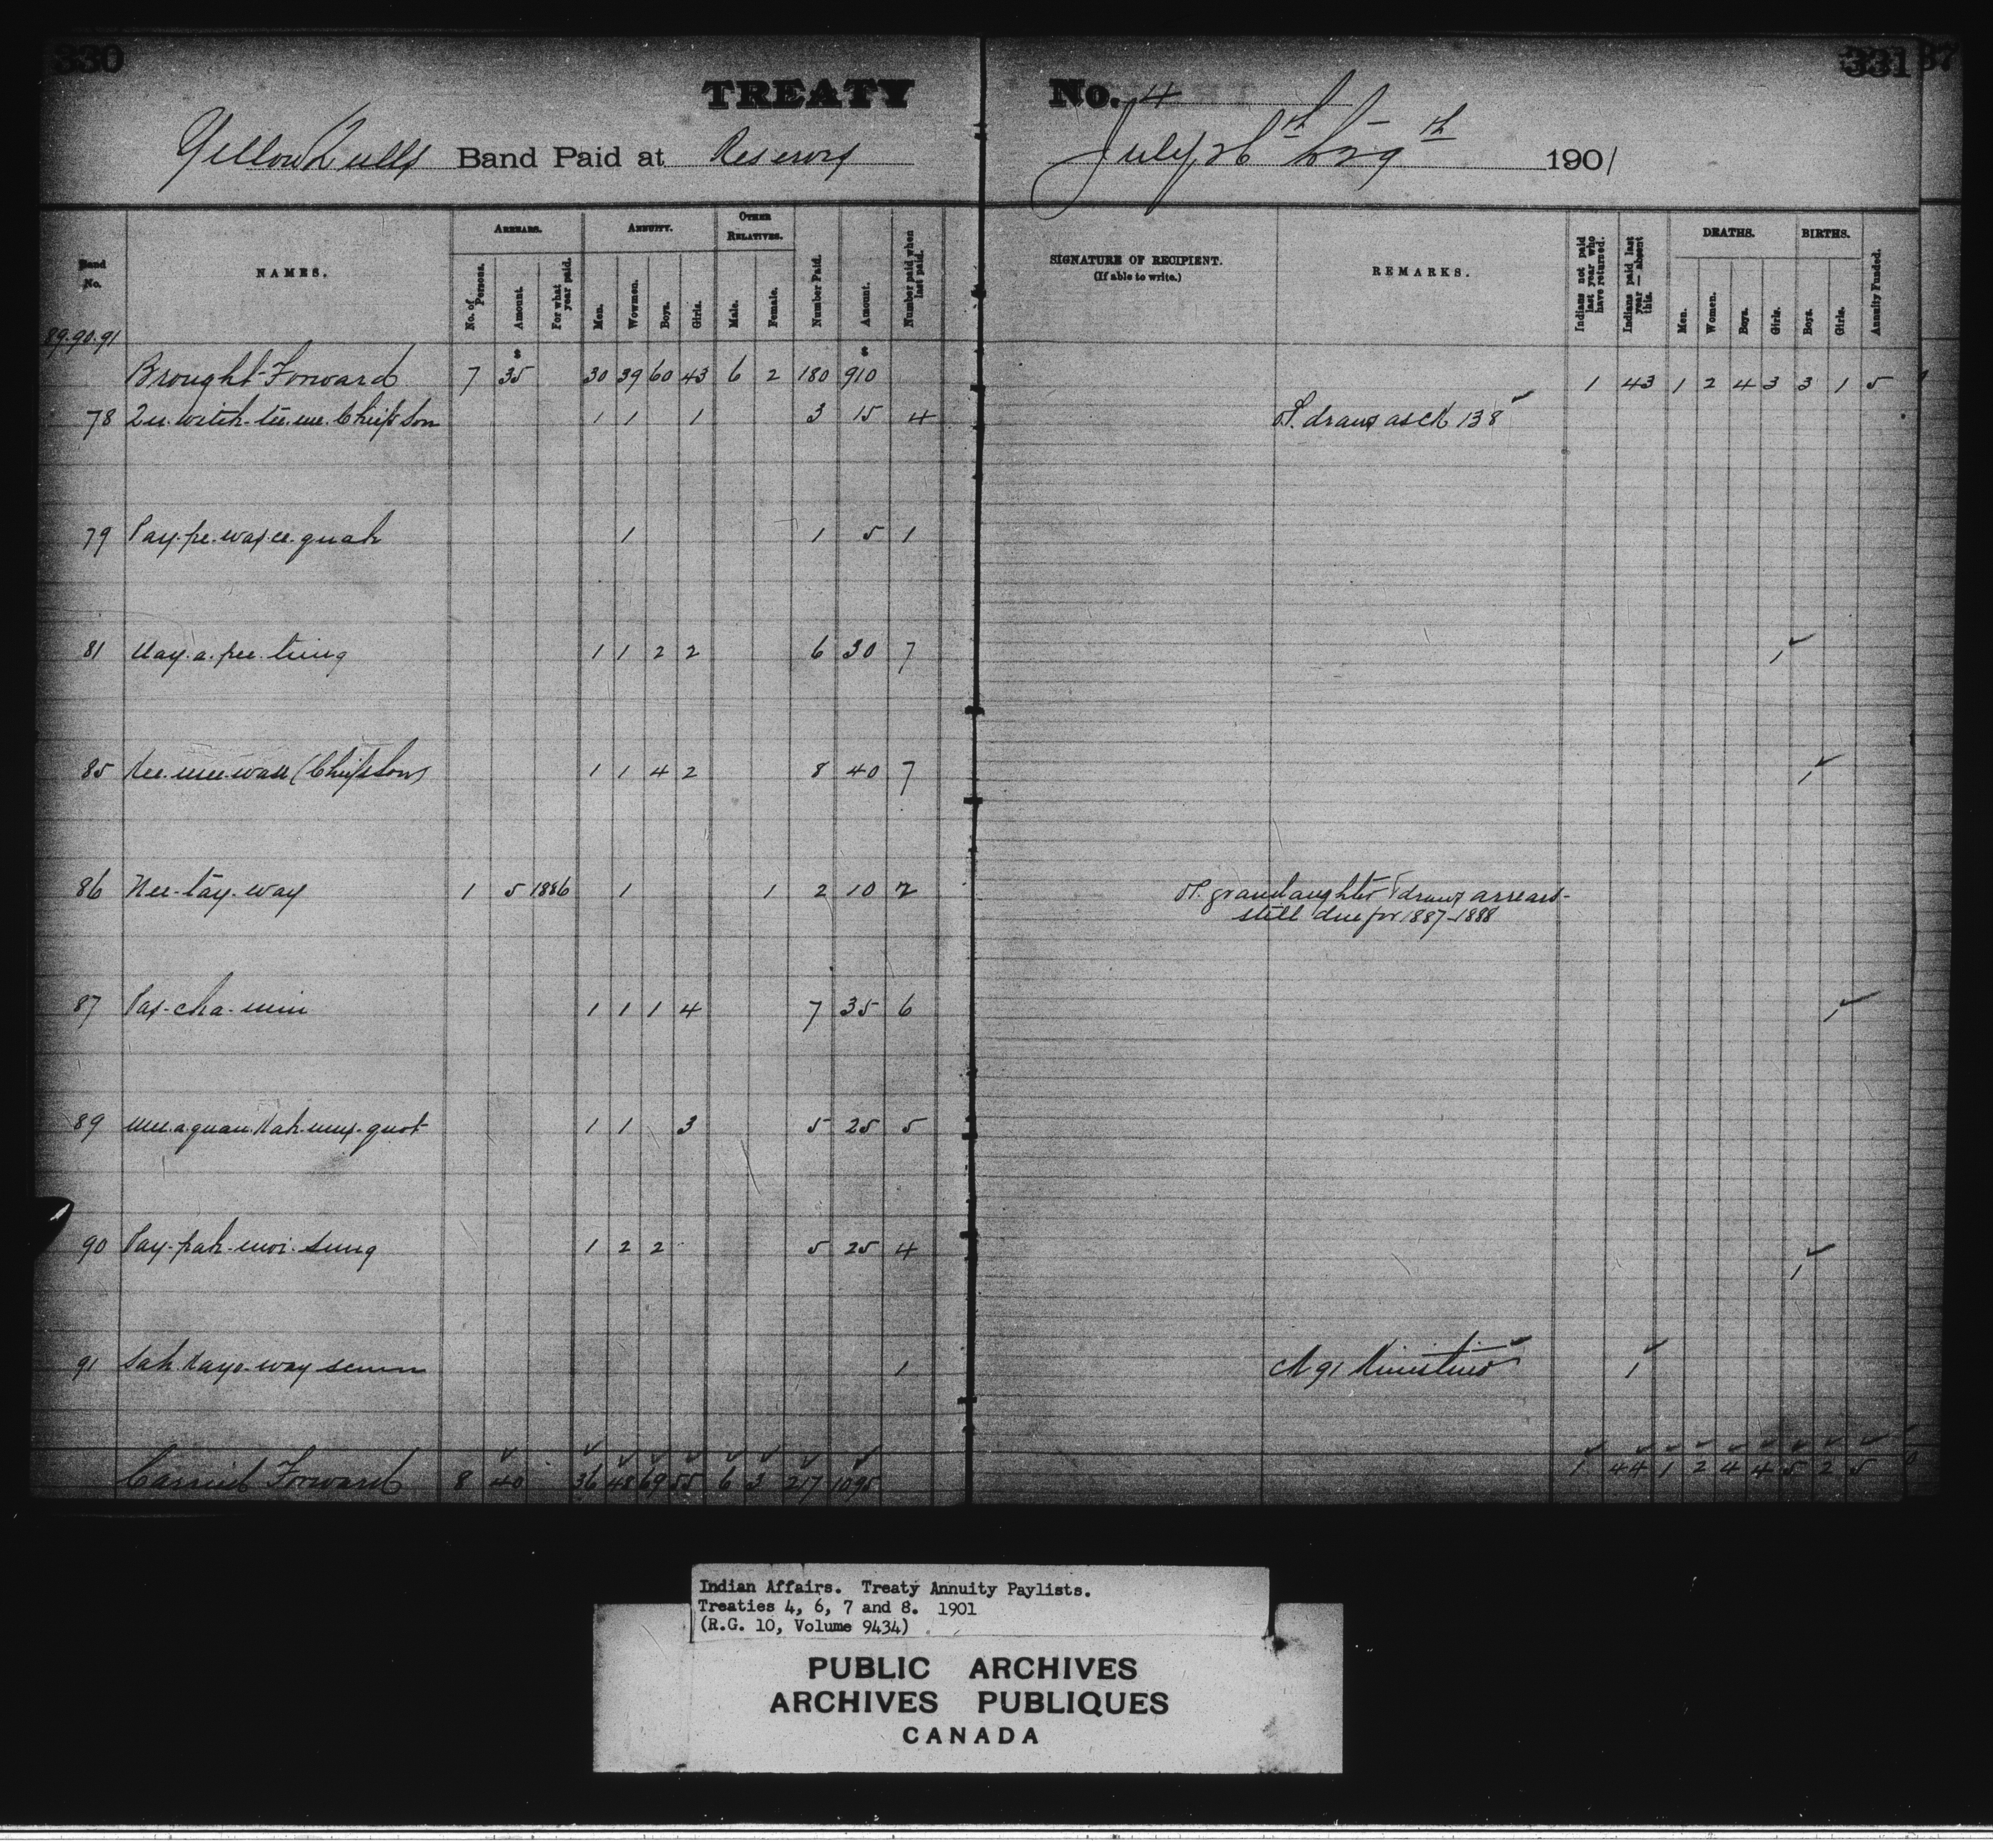 330
331
37
TREATY No. 4
Yellow Quills Band Paid at Reserve July 26th to 29th 1901
Band No.
NAMES.
ARREARS.
No. of Persons.
Amount.
For what year paid.
ANNUITY.
Men.
Wowmen.
Boys.
Girls.
OTHER RELATIVES.
Male.
Female.
Number Paid.
Amount.
Number paid when last paid.
SIGNATURE OF RECIPIENT.
(If able to write.)
REMARKS.
Indians not paid last year who have returned.
Indians paid last year — absent this.
DEATHS.
Men.
Women.
Boys.
Girls.
BIRTHS.
Boys.
Girls.
Annuity Funded.
89.90.91
Brought Forward 7 35 30 39 60 43 6 2 180 910 1 43 1 2 4 3 3 1 5
78 Qu.witch.tee.me. Chief's Son 1 1 1 3 15 4 draws as ck 138
79 Pay.pe.way.ce.quah 1 1 5 1
81 May.a.pee.ting 1 1 2 2 6 30 7 1
85 Kee.mee.wan (Chief's Son) 1 1 4 2 8 40 7 1
86 Nee-tay-way 1 5 1886 1 1 2 10 2 grandaughter draws arrears-
still due for 1887-1888
87 Pay-cha-min 1 1 1 4 7 35 6 1
89 Mee.a.quan.Kah.mus.quot 1 1 3 5 25 5
90 Pay-pah-moi-sung 1 2 2 5 25 4 1
91 Sah.Kayo-way 1 Ck 91 Kinistino 1
Carried Forward 8 40 36 48 69 55 6 3 217 1095 1 44 1 2 4 4 5 2 5
Indian Affairs. Treaty Annuity Paylists.
Treaties 4, 6, 7 and 8. 1901
(R.G. 10, Volume 9434)
PUBLIC ARCHIVES
ARCHIVES PUBLIQUES
CANADA